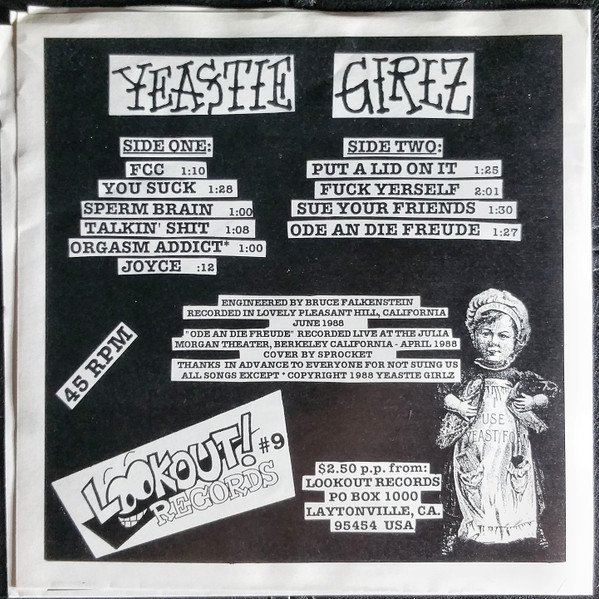 YEASTIE GIRLZ
SIDE ONE:
FCC 1:10
YOU SUCK 1:28
SPERM BRAIN 1:00
TALKIN' SHIT 1:08
ORGASM ADDICT* 1:00
JOYCE :12
SIDE TWO:
PUT A LID ON IT 1:25
FUCK YERSELF 2:01
SUE YOUR FRIENDS 1:30
ODE AN DIE FREUDE 1:27
ENGINEERED BY BRUCE FALKENSTEIN
RECORDED IN LOVELY PLEASANT HILL, CALIFORNIA
JUNE 1988
"ODE AN DIE FREUDE" RECORDED LIVE AT THE JULIA
MORGAN THEATER, BERKELEY CALIFORNIA - APRIL 1988
COVER BY SPROCKET
THANKS IN ADVANCE TO EVERYONE FOR NOT SUING US
ALL SONGS EXCEPT * COPYRIGHT 1988 YEASTIE GIRLZ
45 RPM
LOOKOUT! #9
RECORDS
$2.50 p.p. from:
LOOKOUT RECORDS
PO BOX 1000
LAYTONVILLE, CA.
95454 USA
I
USE
YEAST FO